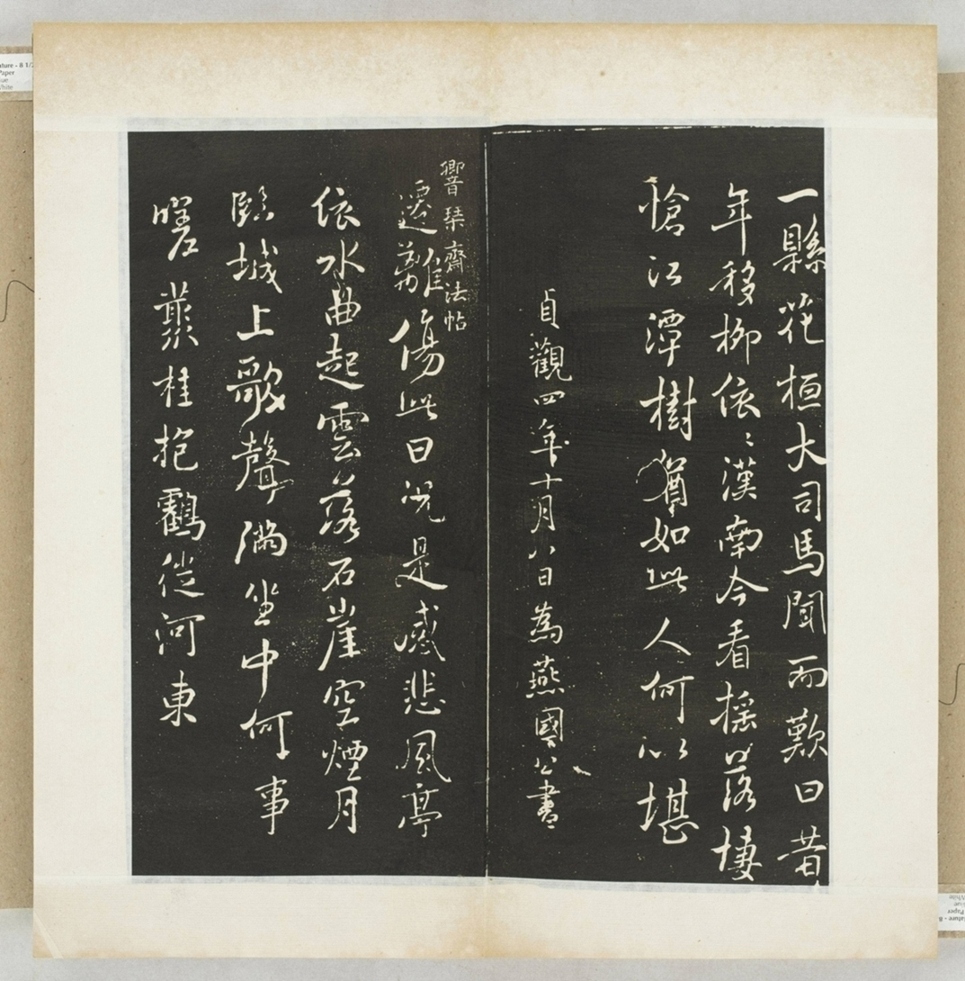 一縣花桓大司馬聞而歎曰昔
年移柳依〻漢南今看搖落悽
愴江潭樹猶如此人何以堪
貞觀四年十月八日為燕國公書
響琴齋法帖
遷難傷此日況是感悲風亭
依水曲起雲落石崖空煙月
臨城上歌聲滿坐中何事
嗟叢桂抱鸖從河東